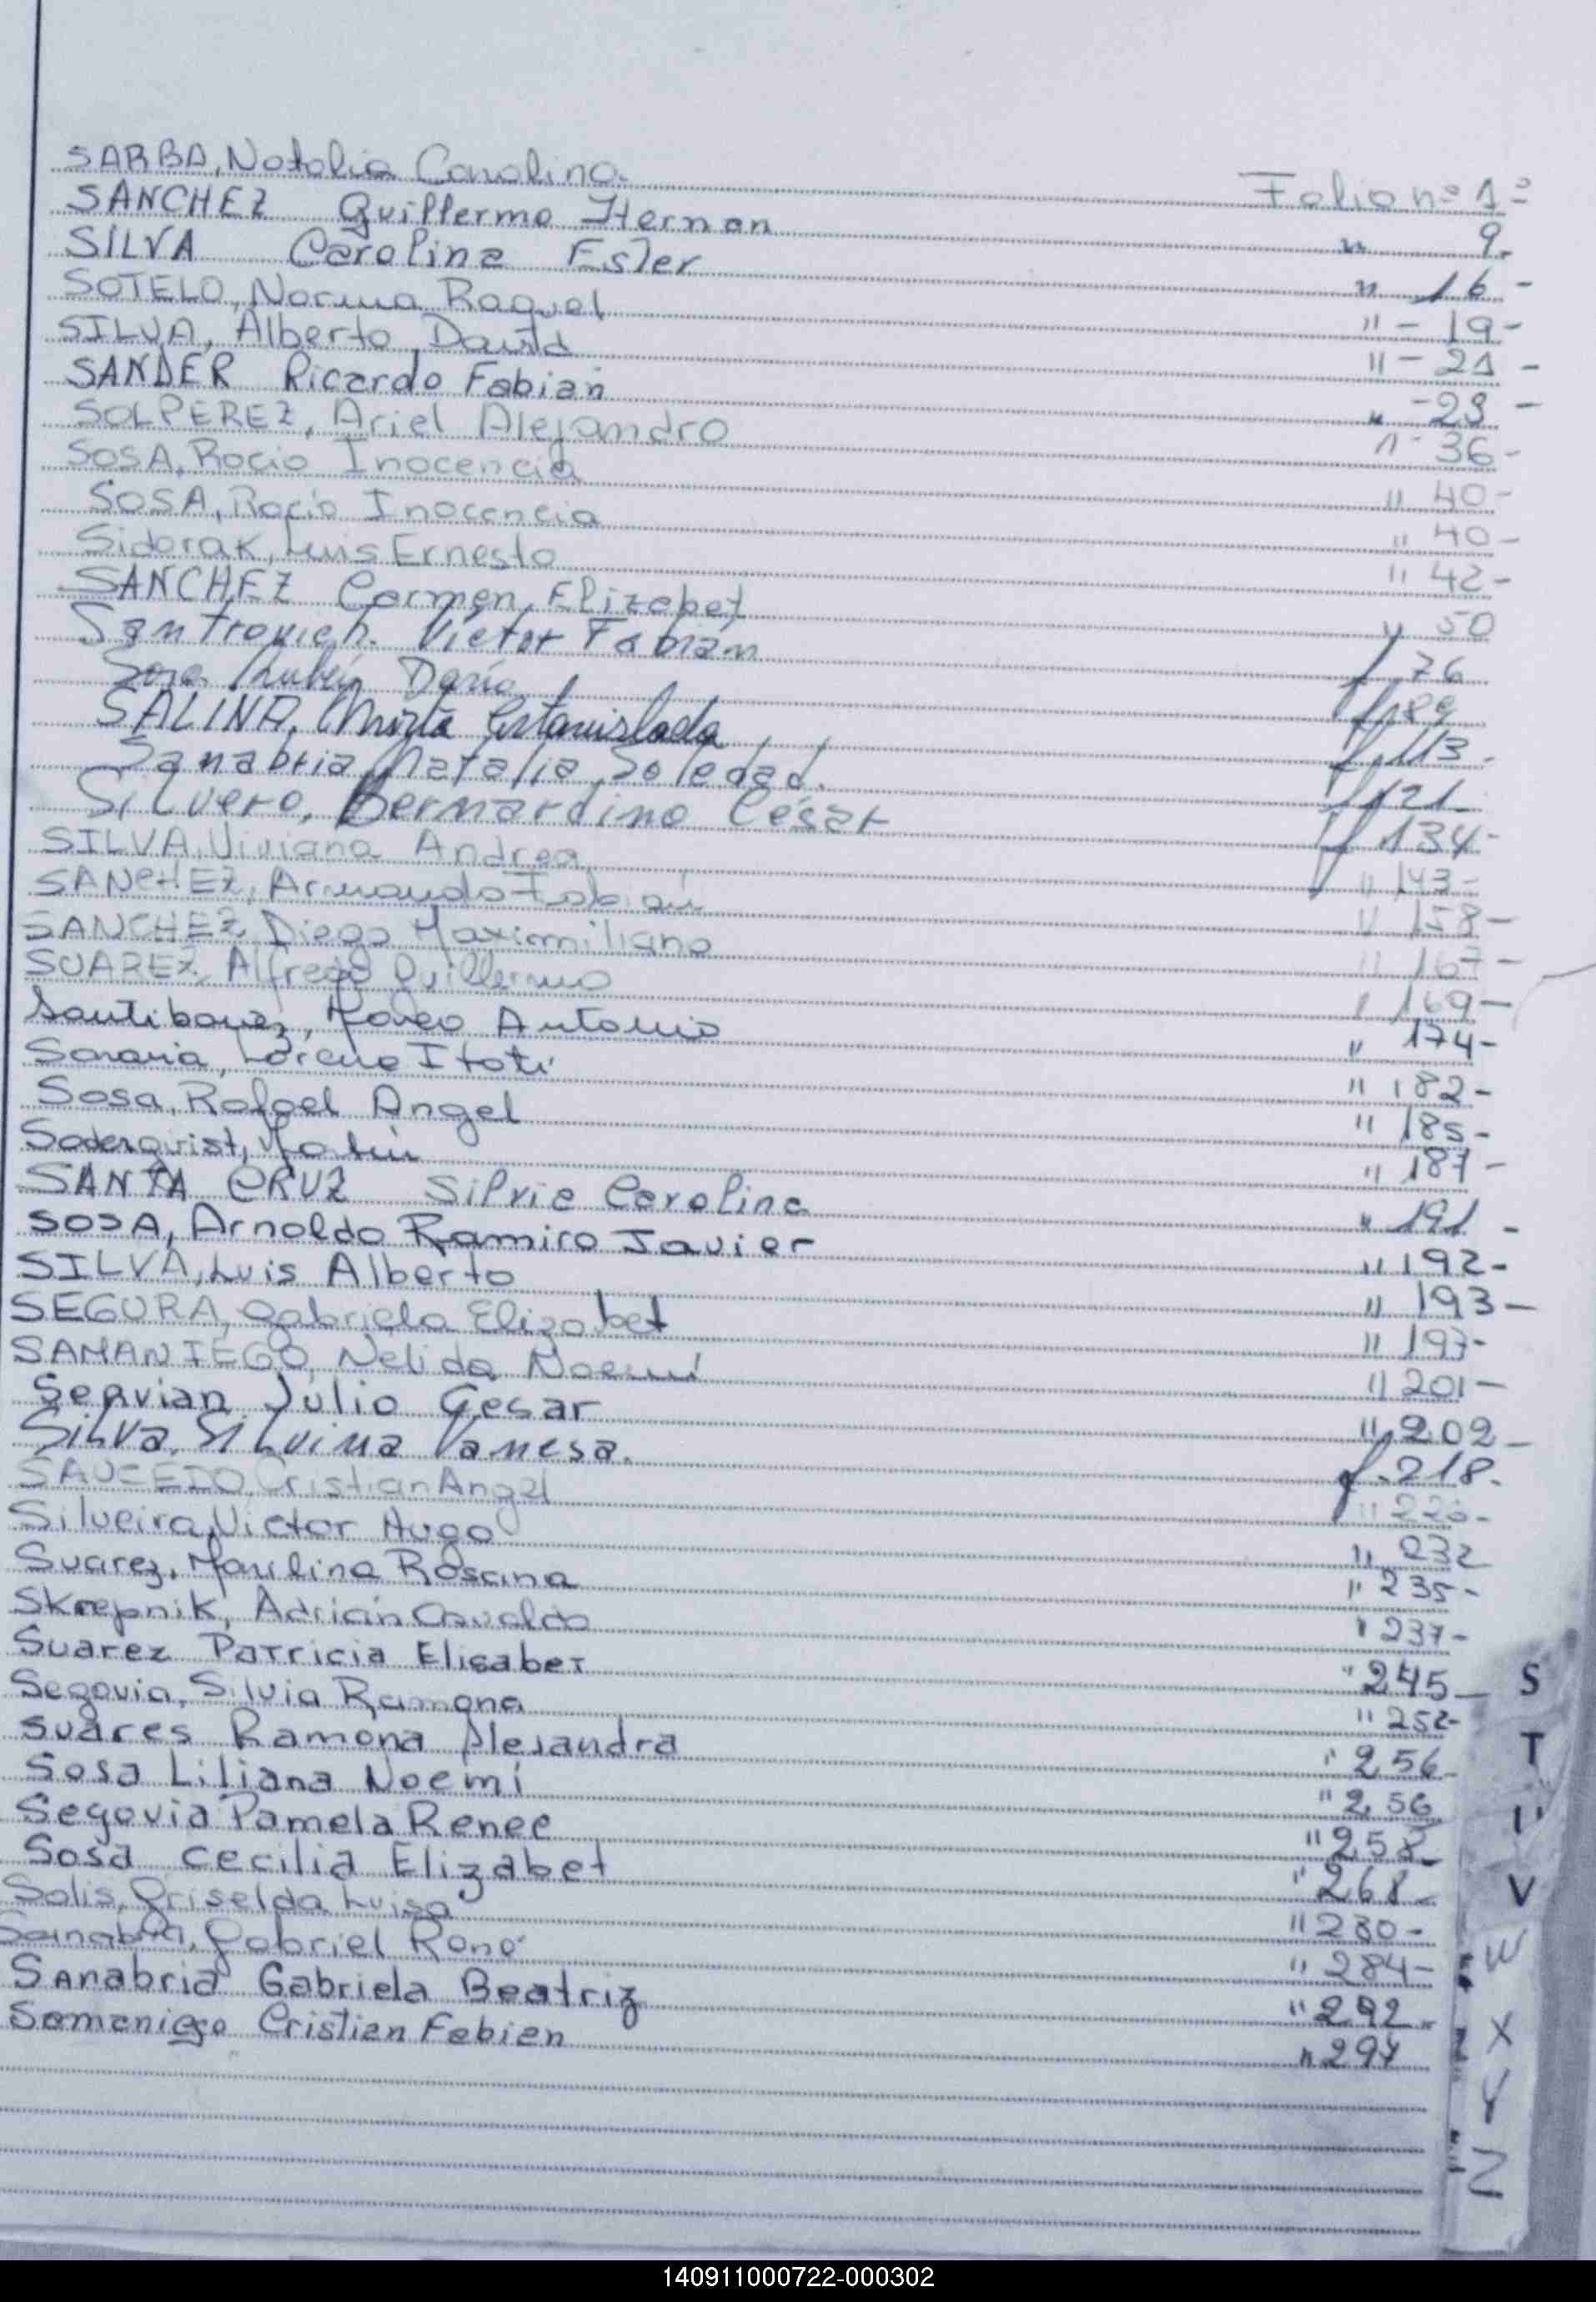 SARBA, Natalia Carolina. Folio nº 1-
SANCHEZ Guillermo Hernan " 9-
SILVA Carolina Ester " 16-
SOTELO, Norma Raquel " - 19-
SILVA, Alberto David " - 21-
SANDER Ricardo Fabian " - 23-
SOLPEREZ, Ariel Alejandro " - 36-
SOSA, Rocio Inocencia " 40-
SOSA, Rocio Inocencia " 40-
Sidorak, Luis Ernesto " 42-
SANCHEZ Carmen Elizabet " 50
Santrovich. Victor Fabián f 76
Sosa Rubén Darío f 89
SALINA, Mirta Estanislada f 113-
Sanabria Natalia Soledad. f 121
Silvero, Bernardino César f 134-
SILVA, Viviana Andrea " 143-
SANCHEZ, Armando Fabián " 158-
SANCHEZ, Diego Maximiliano " 167-
SUAREZ, Alfredo Guillermo " 169-
Santibañez, Marco Antonio " 174-
Sanavia, Lorena Itatí " 182-
Sosa, Rafael Angel " 185-
Soderquist, Martín " 187-
SANTA CRUZ Silvie Caroline " 191-
SOSA, Arnoldo Ramiro Javier " 192-
SILVA, Luis Alberto " 193-
SEGURA, Gabriela Elizabet " 197-
SAMANIEGO, Nelida Noemí " 201-
Servian Julio Cesar " 202-
Silva, Silvina Vanesa. f 218-
SAUCEDO, Cristian Angel "
Silveira, Victor Hugo " 232
Suarez, Maulina Rosana " 235-
Skrepnik, Adrián Osvaldo " 237-
Suarez Patricia Elisabet " 245-
Segovia, Silvia Ramona " 252-
Suares Ramona Alejandra " 256-
Sosa Liliana Noemí " 256
Segovia Pamela Renee " 258-
Sosa Cecilia Elizabet " 268-
Solis, Griselda Luisa " 280-
Sanabria, Gabriel René " 284-
Sanabria Gabriela Beatriz " 292-
Samaniego Cristian Fabian " 294
S
T
U
V
W
X
Y
Z
140911000722-000302